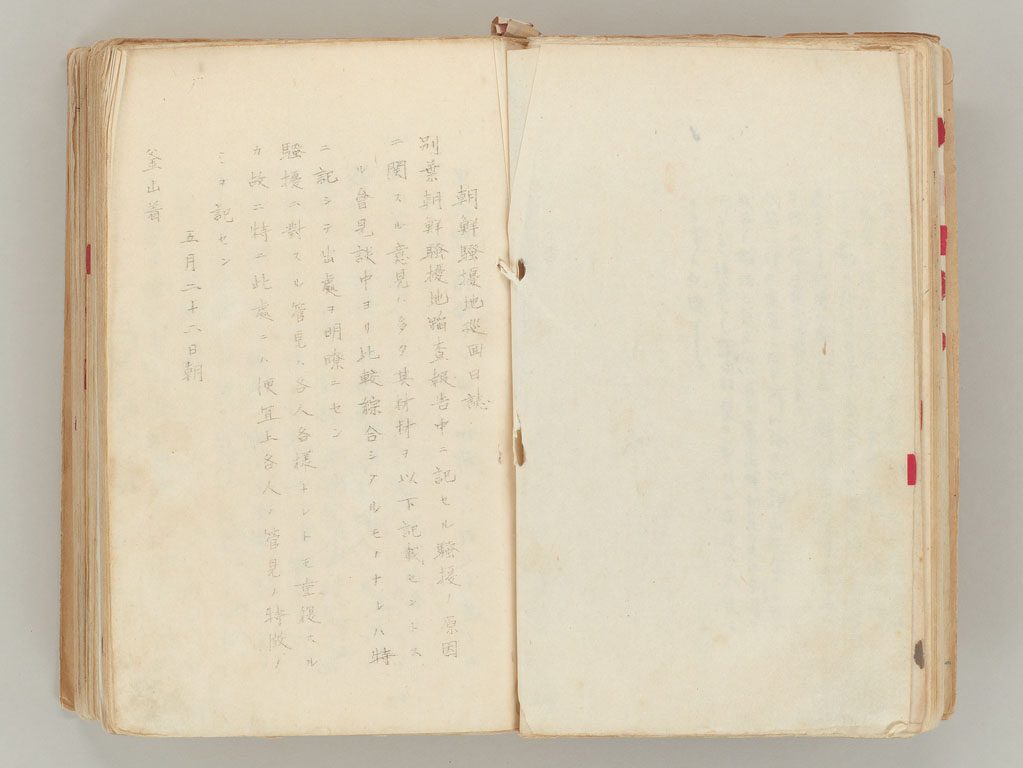 朝鮮騒擾地巡回日誌
別葉朝鮮騒擾地踏査報告中ニ記セル騒擾ノ原因
ニ関スル意見ハ多ク其材料ヲ以下記載セントス
ル會見談中ヨリ比較綜合シタルモノナレハ特
ニ記シテ出處ヲ明瞭ニセン
騒擾ニ對スル管見ハ各人各様ナレトモ重複スル
カ故ニ特ニ此處ニハ便宜上各人ノ管見ノ特徴ノ
ミヲ記セン
五月二十六日朝
釜山着